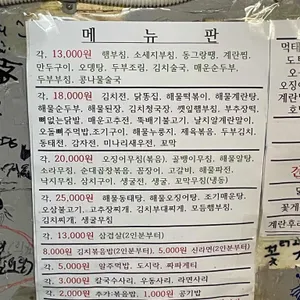 메 뉴 판
각. 13,000원 햄부침, 소세지부침, 동그랑땡, 계란찜,
만두구이, 오뎅탕, 두부조림, 김치술국, 매운순두부,
두부부침, 콩나물술국
각. 18,000원 김치전, 닭똥집, 해물떡볶이, 해물계란탕,
해물순두부, 해물된장, 김치청국장, 깻잎햄부침, 부추장떡,
뼈없는닭발, 매운고추전, 뚝배기불고기, 날치알계란말이,
오돌뼈주먹밥,조기구이, 해물누룽지, 제육볶음, 두부김치,
동태전, 감자전, 미나리새조개전, 꼬막
각. 20,000원 오징어무침(볶음), 골뱅이무침, 해물알탕,
소라무침, 순대곱창볶음, 꼼장어, 고갈비, 해물파전,
낙지무침, 삼치구이, 생굴전, 생굴, 꼬막무침(냉동)
각. 25,000원 해물동태탕, 해물오징어탕, 조기매운탕,
오삼불고기, 고추장찌개, 김치부대찌개, 모듬햄부침,
김치찌개, 생굴무침
각. 13,000원 삼겹살(2인분부터)
8,000원 김치볶음밥(2인분부터), 5,000원 신라면(2인분부터)
각. 5,000원 알주먹밥, 도시락, 짜파게티
각. 3,000원 칼국수사리, 우동사리, 라면사리
각. 2,000원 추가:볶음밥, 1,000원 공기밥
먹태